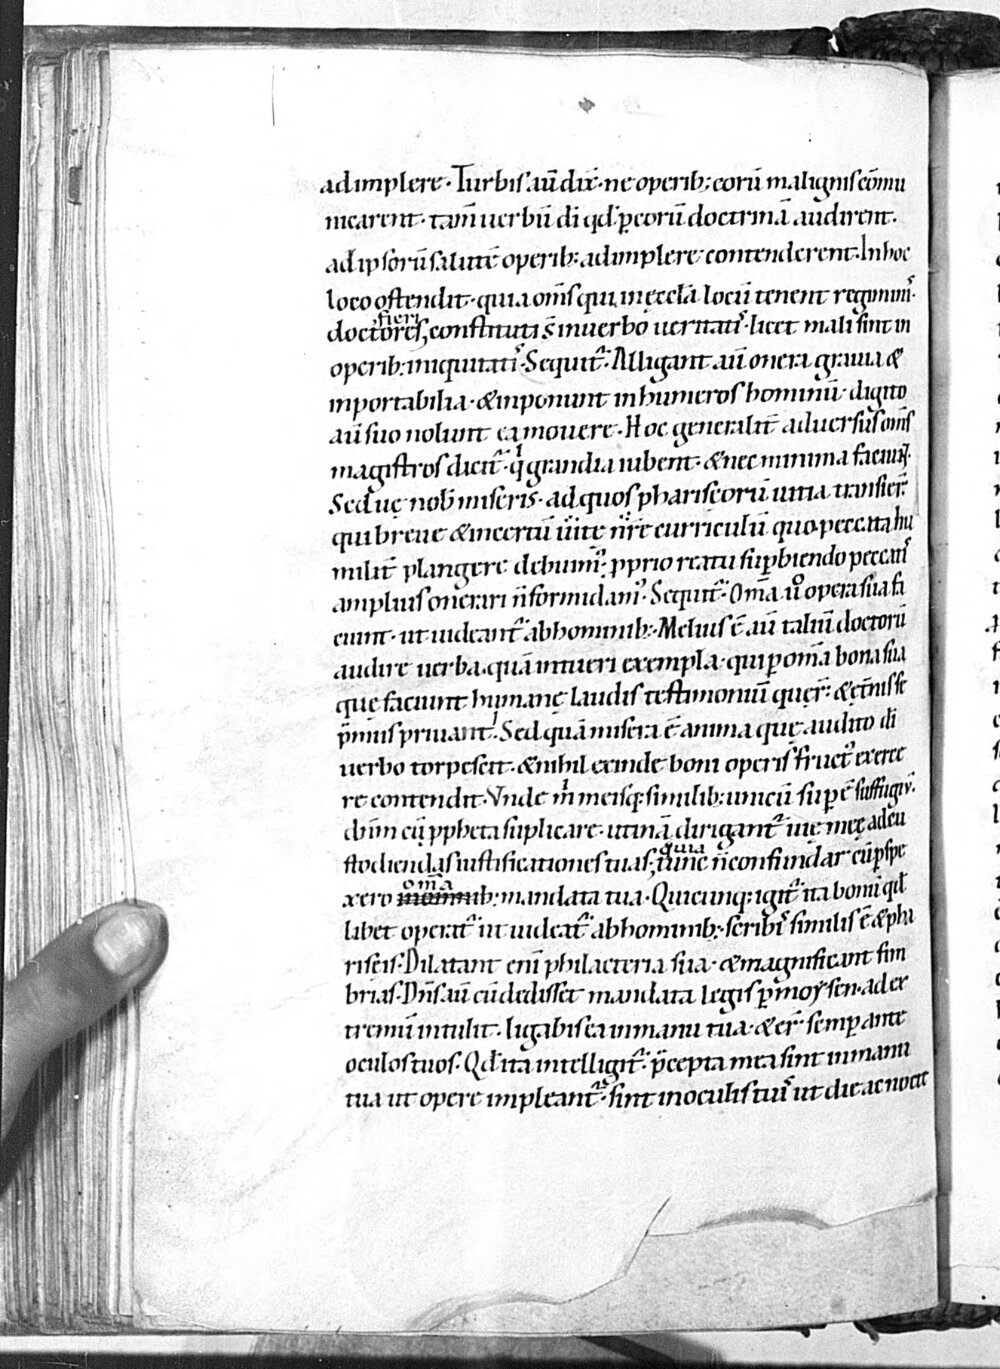 adimplere· Turbis aū dix̄· ne operib; eorū malignis cōmu
nicarent· tam̄ uerbū dī qd̄ p̲ eorū doctrinā audirent·
ad ipsorū salutē operib; adimplere contenderent· In hoc
loco ostendit· quia om̄s qui in ęccła locū tenent regiminis·
doctores fieri, constituti s̄ in uerbo ueritatis· licet mali sint in
operib; iniquitatis· Sequit᷑· Alligant aū onera grauia &
inportabilia· & inponunt in humeros hominū· digito
aū suo nolunt ea mouere· Hoc generalit̄ aduersus om̄s
magistros dicit᷑· qͥ grandia iubent· & nec minima faciunt·
Sed uę nob̄ miseris· ad quos phariseorū uitia transier᷑·
qui breue & incertū uitę nr̄e curriculū quo peccata hu
milit̄ plangere debuim᷒· p̲prio reatu sup̲biendo peccatis
amplius onerari n̄ formidam᷒· Sequit᷑· Om̄a uͦ opera sua fa
ciunt· ut uideant᷑ ab hominib;· Melius ē aū taliū doctorū
audire uerba quā intueri exempla· qui p̲ om̄a bona sua
que faciunt humanę laudis testimoniū quer᷑· & ęt̄nis se
p̄miis priuant· Sed quā misera ē anima quę audito dī
uerbo torpescit· & nihil exinde boni operis fruct᷒ exerce
re contendit· Vnde m̄ meisq; similib; unicū sup̲ ē suffugiū·
dn̄m cū p̲pheta suplicare· utinā dirigant᷑ uię męę ad cu
stodiendas iustificationes tuas, quia tunc n̄ confundar cū p̲spe
xero om̄a inomnib; mandata tua· Quicunq; igit᷑ ita boni qd̄
libet operat᷑ ut uideat᷑ ab hominib;· scribis similis ē & pha
riseis· Dilatant eni philacteria sua· & magnificant fim
brias· Dn̄s aū cū dedisset mandata legis p̲ moẏsen· ad ex
tremū intulit· ligabis ea in manu tua· & er̄ semp̲ ante
oculos tuos· Qd̄ ita intelligit᷑· p̄cepta mea sint in manu
tua ut opere impleant᷑· sint in oculis tuis ut die ac nocte